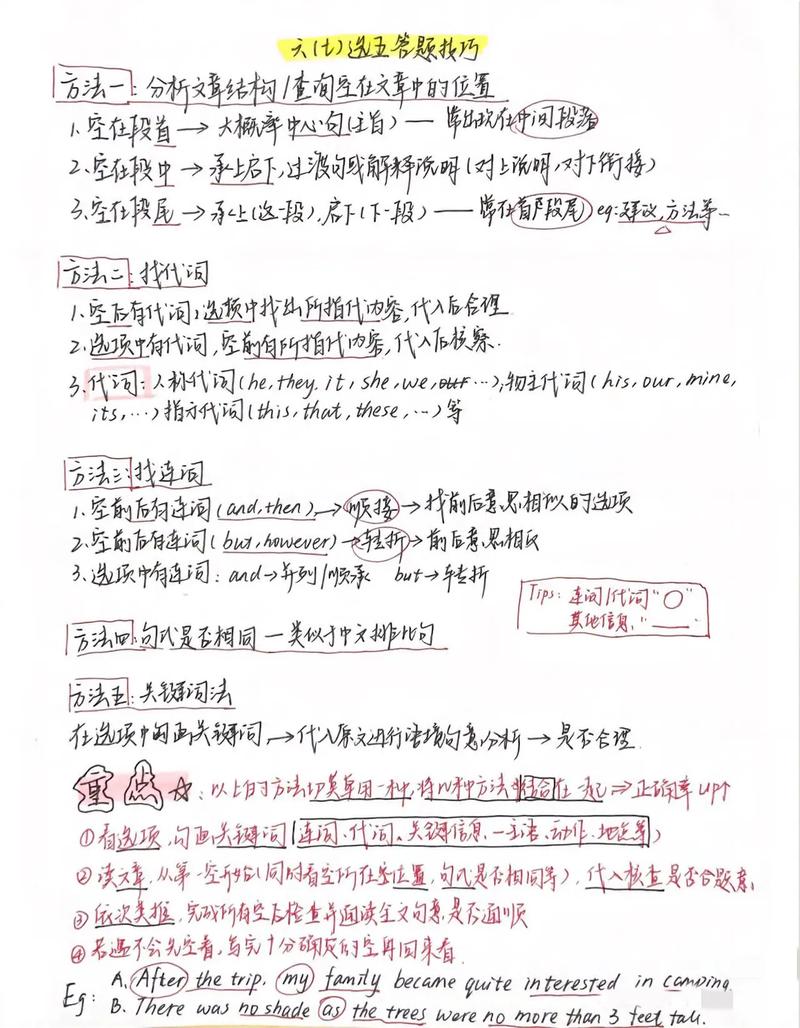 六(七)选五答题技巧
方法一:分析文章结构/查询空在文章中的位置
1.空在段首→大概率中心句(主旨)—常出现在中间段落
2.空在段中→承上启下,过渡句或解释说明(对上说明,对下衔接)
3.空在段尾→承上(这一段),启下(下一段)—常在首段段尾 eg:建议,方法等…
方法二:找代词
1.空后有代词,选项中找出所指代内容,代入后合理.
2.选项中有代词,空前有所指代内容,代入后核察.
3.代词:人称代词(he,they,it,she,we,our…);物主代词(his,our,mine,
its,…)指示代词(this,that,these,…)等
方法三:找连词
1.空前后有连词(and,then)→顺接→找前后意思相似的选项
2.空前后有连词(but,however)→转折→前后意思相反
3.选项中有连词:and→并列/顺承 but→转折
Tips:连词/代词"○"
其他信息,"——"
方法四:句式是否相同—类似于中文排比句
方法五:关键词法
在选项中勾画关键词,→代入原文进行语境句意分析→是否合理.
重点☆:以上的方法切莫单用一种,将几种方法结合在一起⇒正确率up↑
①看选项,勾画关键词(连词、代词、关键信息—主语、动作、地点等)
②读文章,从第一空开始(同时看空所在位置,句式是否相同等),代入核查是否合题意.
③依次类推,完成所有空后检查并通读全文句意是否通顺
④若遇不会先空着,写完十分确定的空再回来看.
Eg: A. After the trip, my family became quite interested in camping.
B. There was no shade as the trees were no more than 3 feet tall.